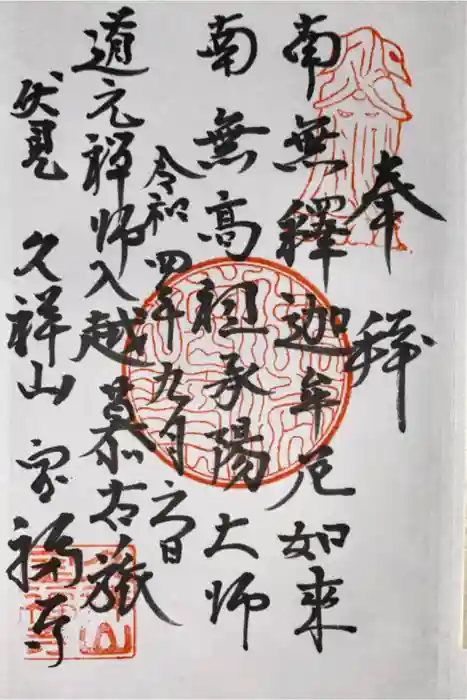 奉拜
南無釋迦牟尼如來
南無高祖承陽大師
令和四年九月六日
道元禅師入越慕古蹟
伏見 久祥山 宝福寺